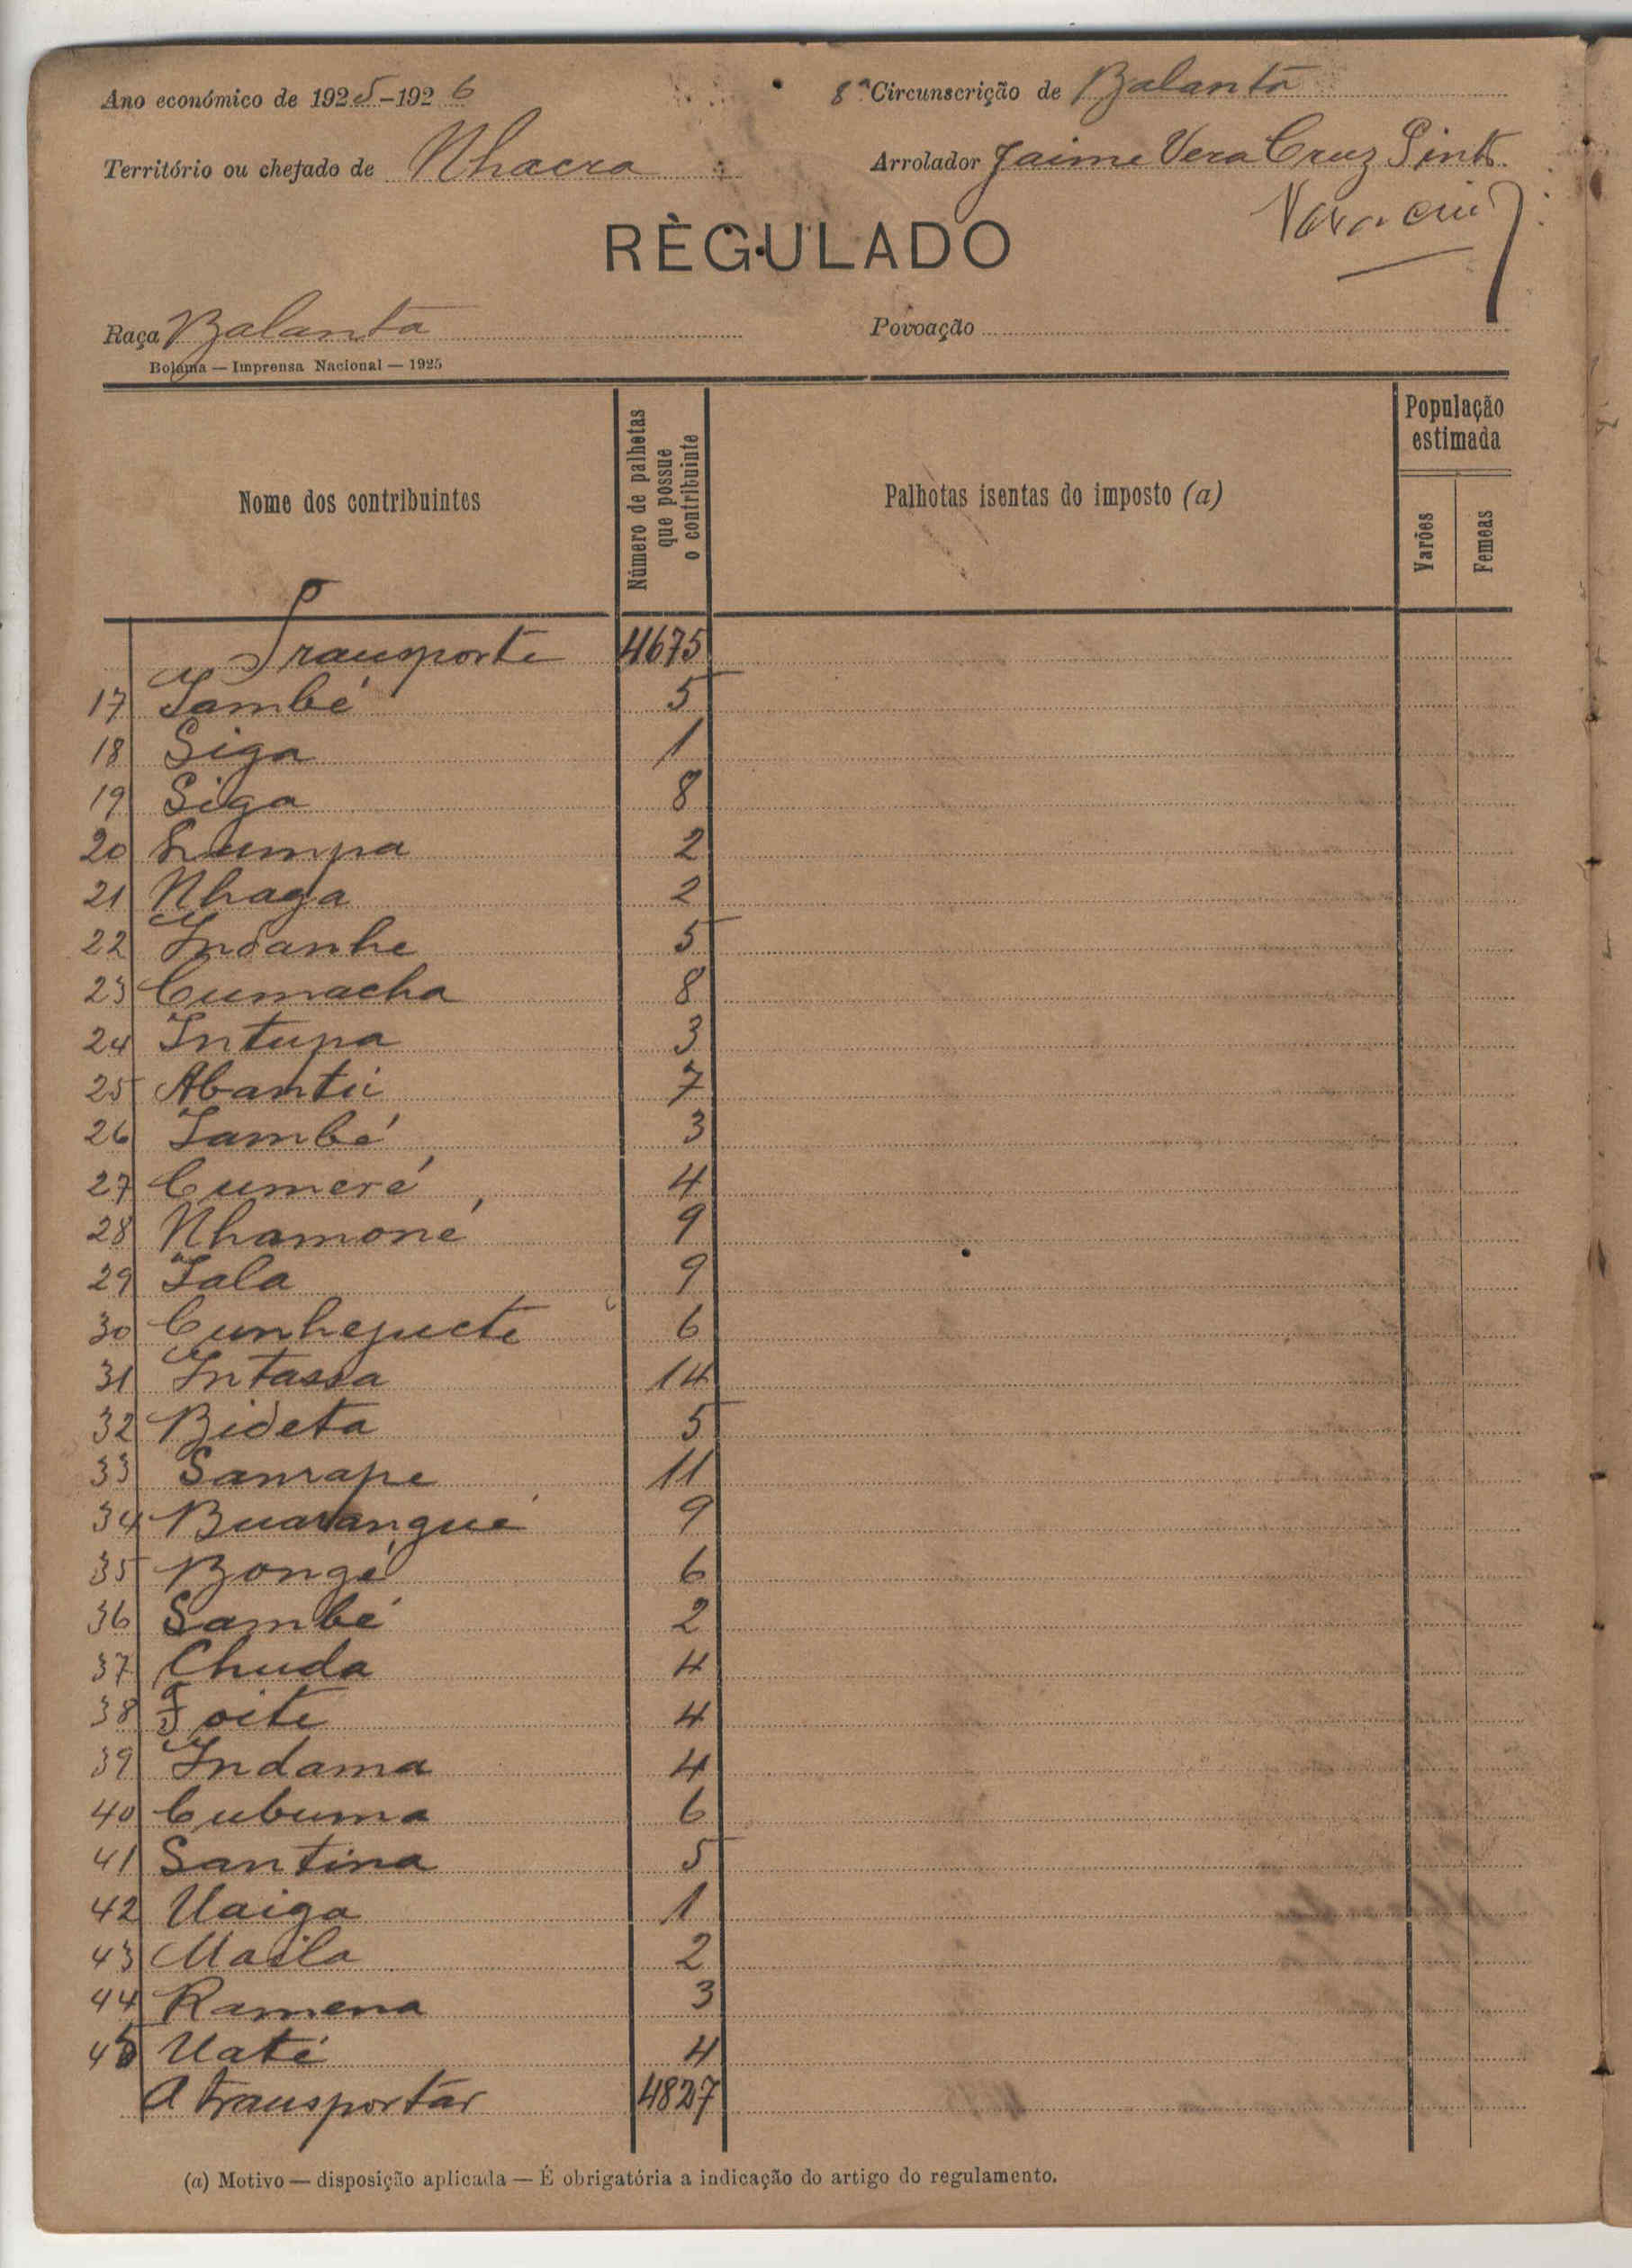 Ano económico de 1925-1926
8ª Circunscrição de Balanta
Território ou chefado de Nhacra
Arrolador Jaime Vera Cruz Pinto
RÉGULADO
Raça Balanta
Povoação
Bolama — Imprensa Nacional — 1925
Nome dos contribuintes
Número de palhotas que possue o contribuinte
Palhotas isentas do imposto (a)
População estimada
Varões
Femeas
Transporte 4675
17 Iambé 5
18 Siga 1
19 Siga 8
20 Lumpa 2
21 Nhaga 2
22 Indanhe 5
23 Cumacha 8
24 Intupa 3
25 Abantú 7
26 Iambé 3
27 Cumeré 4
28 Nhamoné 9
29 Iala 9
30 Cunhequete 6
31 Intassa 14
32 Bideta 5
33 Sanrape 11
34 Buarangué 9
35 Bongé 6
36 Sambé 2
37 Chuda 4
38 Foite 4
39 Indama 4
40 Cubuma 6
41 Santina 5
42 Uaiga 1
43 Masla 2
44 Ramena 3
45 Uaté 4
A transportar 4827
(a) Motivo — disposição aplicada — É obrigatória a indicação do artigo do regulamento.